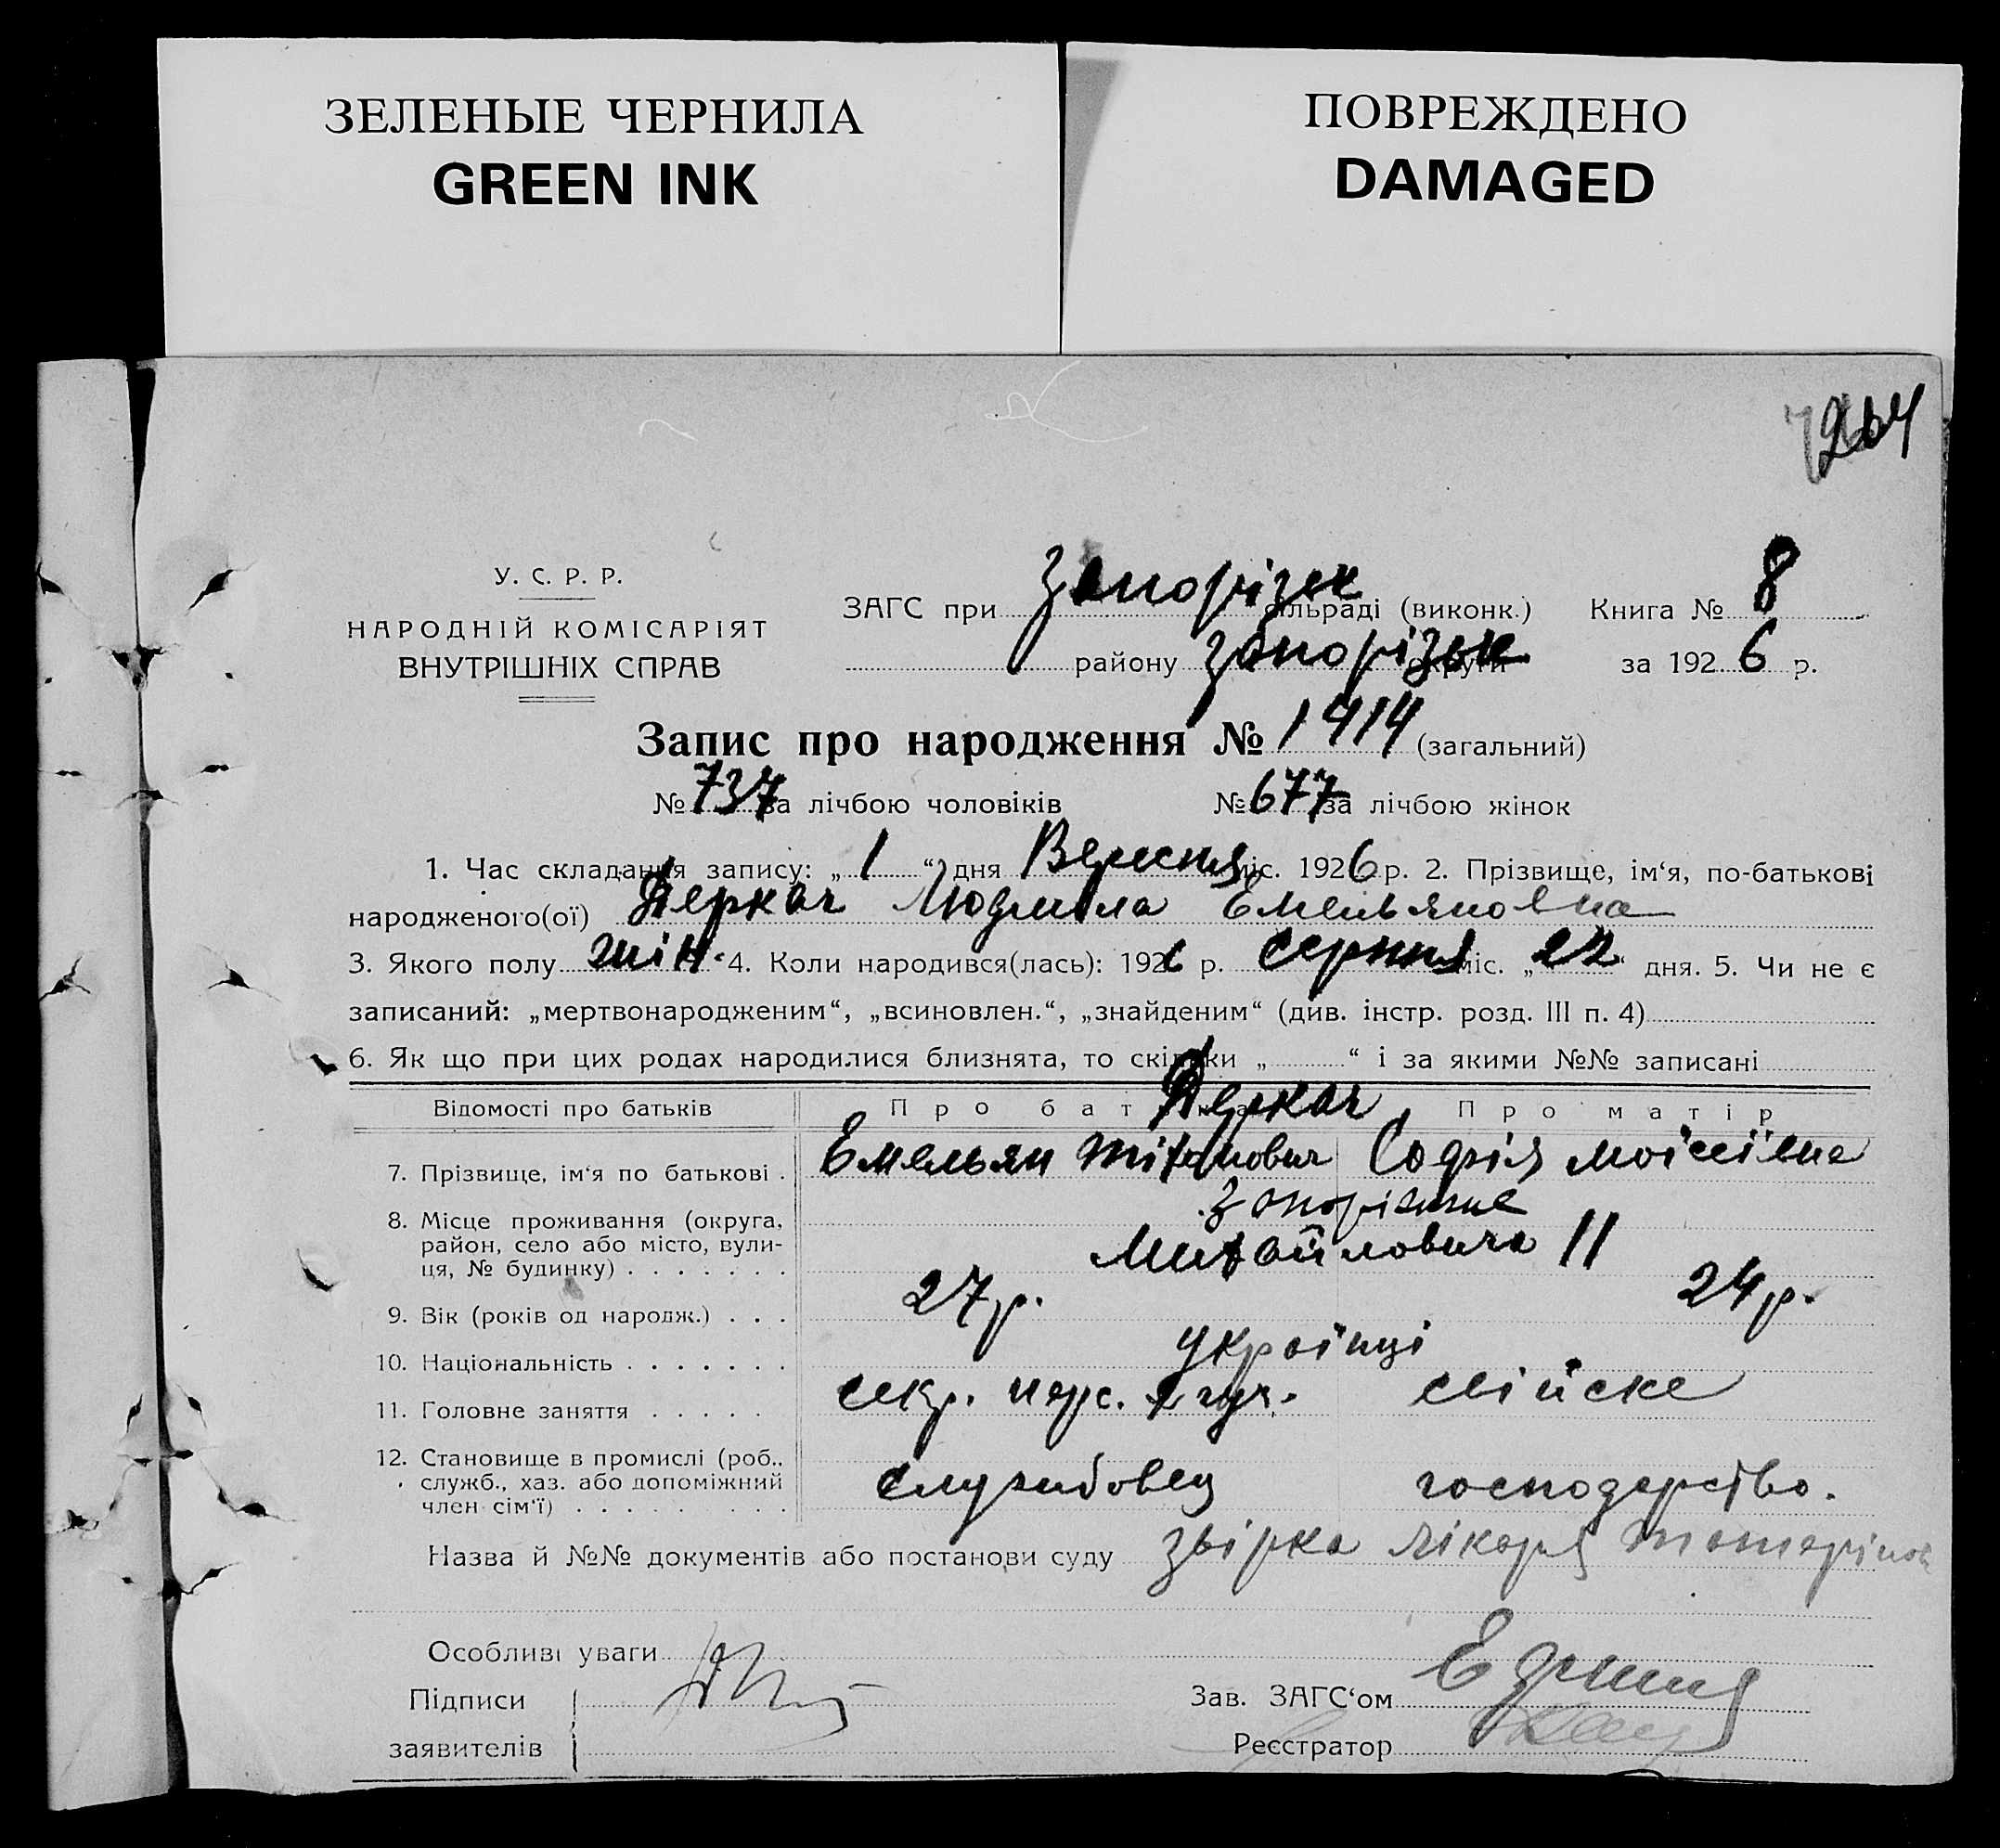 ЗЕЛЕНЫЕ ЧЕРНИЛА
GREEN INK
ПОВРЕЖДЕНО
DAMAGED
264
У. С. Р. Р.
НАРОДНІЙ КОМІСАРІЯТ
ВНУТРІШНІХ СПРАВ
ЗАГС при Запорізьк сільраді (виконк.) Книга № 8
району Запорізьк округи за 1926 р.
Запис про народження № 1414 (загальний)
№ 737 за лічбою чоловіків № 677 за лічбою жінок
1. Час складання запису: „1“ дня Вересня міс. 1926 р. 2. Прізвище, ім‘я, по-батькові
народженого(ої) Деркач Людмила Емельяновна
3. Якого полу жін. 4. Коли народився(лась): 1926 р. серпня міс. „22“ дня. 5. Чи не є
записаний: „мертвонародженим“, „всиновлен.“, „знайденим“ (див. інстр. розд. III п. 4)
6. Як що при цих родах народилися близнята, то скільки „ “ і за якими №№ записані
Відомості про батьків Про батька Про матір
Деркач
7. Прізвище, ім‘я по батькові . Емельян Софія Моісеївна
8. Місце проживання (округа, район, село або місто, вулиця, № будинку) . . . . . . . Запоріжже
Михайловича 11
9. Вік (років од народж.) . . . 27 р. 24 р.
10. Національність . . . . . . . українці
11. Головне заняття . . . . . секр. свійске
12. Становище в промислі (роб., служб., хаз. або допоміжний член сім‘ї) . . . . . . . . . службовец господарство.
Назва й №№ документів або постанови суду звірка лікаря
Особливі уваги
Підписи
заявителів
Зав. ЗАГС‘ом
Реєстратор